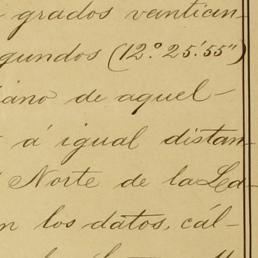 grados vanticin-
gundos (12.º 25.' 55")
iano de aquel-
á igual distan-
Norte de la Led-
n los datos, cál-